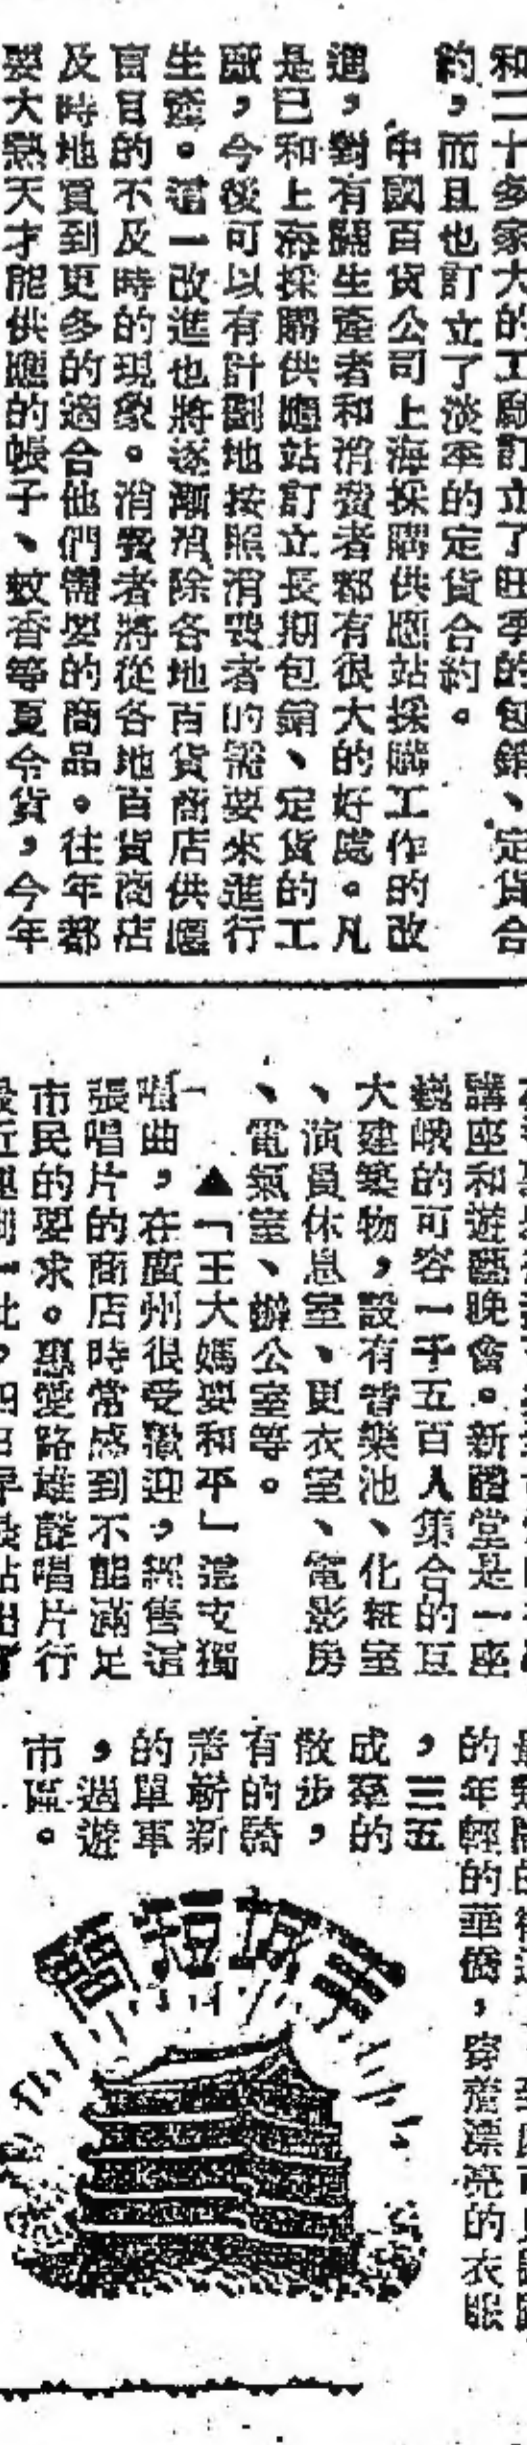 和二十多家大的工廠訂立了旺季的包銷、定貨合
約，而且也訂立了淡季的定貨合約。
中國百貨公司上海採購供應站採購工作的改
進，對有關生產者和消費者都有很大的好處。凡
是已和上海採購供應站訂立長期包銷、定貨的工
廠，今後可以有計劃地按照消費者的需要來進行
生產。這一改進也將逐漸消除各地百貨商店供應
盲目的不及時的現象。消費者將從各地百貨商店
及時地買到更多的適合他們需要的商品。往年都
要大熱天才能供應的帳子、蚊香等夏令貨，今年
講座和遊藝晚會。新禮堂是一座
巍峨的可容一千五百人集合的巨
大建築物，設有音樂池、化粧室
、演員休息室、更衣室、電影房
、電氣室、辦公室等。
▲「王大媽要和平」這支獨
唱曲，在廣州很受歡迎，經售這
張唱片的商店時常感到不能滿足
市民的要求。惠愛路雄聲唱片行
最近運到一批，四日早晨貼出
的年輕的華僑，穿着漂亮的衣服
，三五
成羣的
散步，
有的騎
着嶄新
的單車
，週遊
市區。
羊城短簡